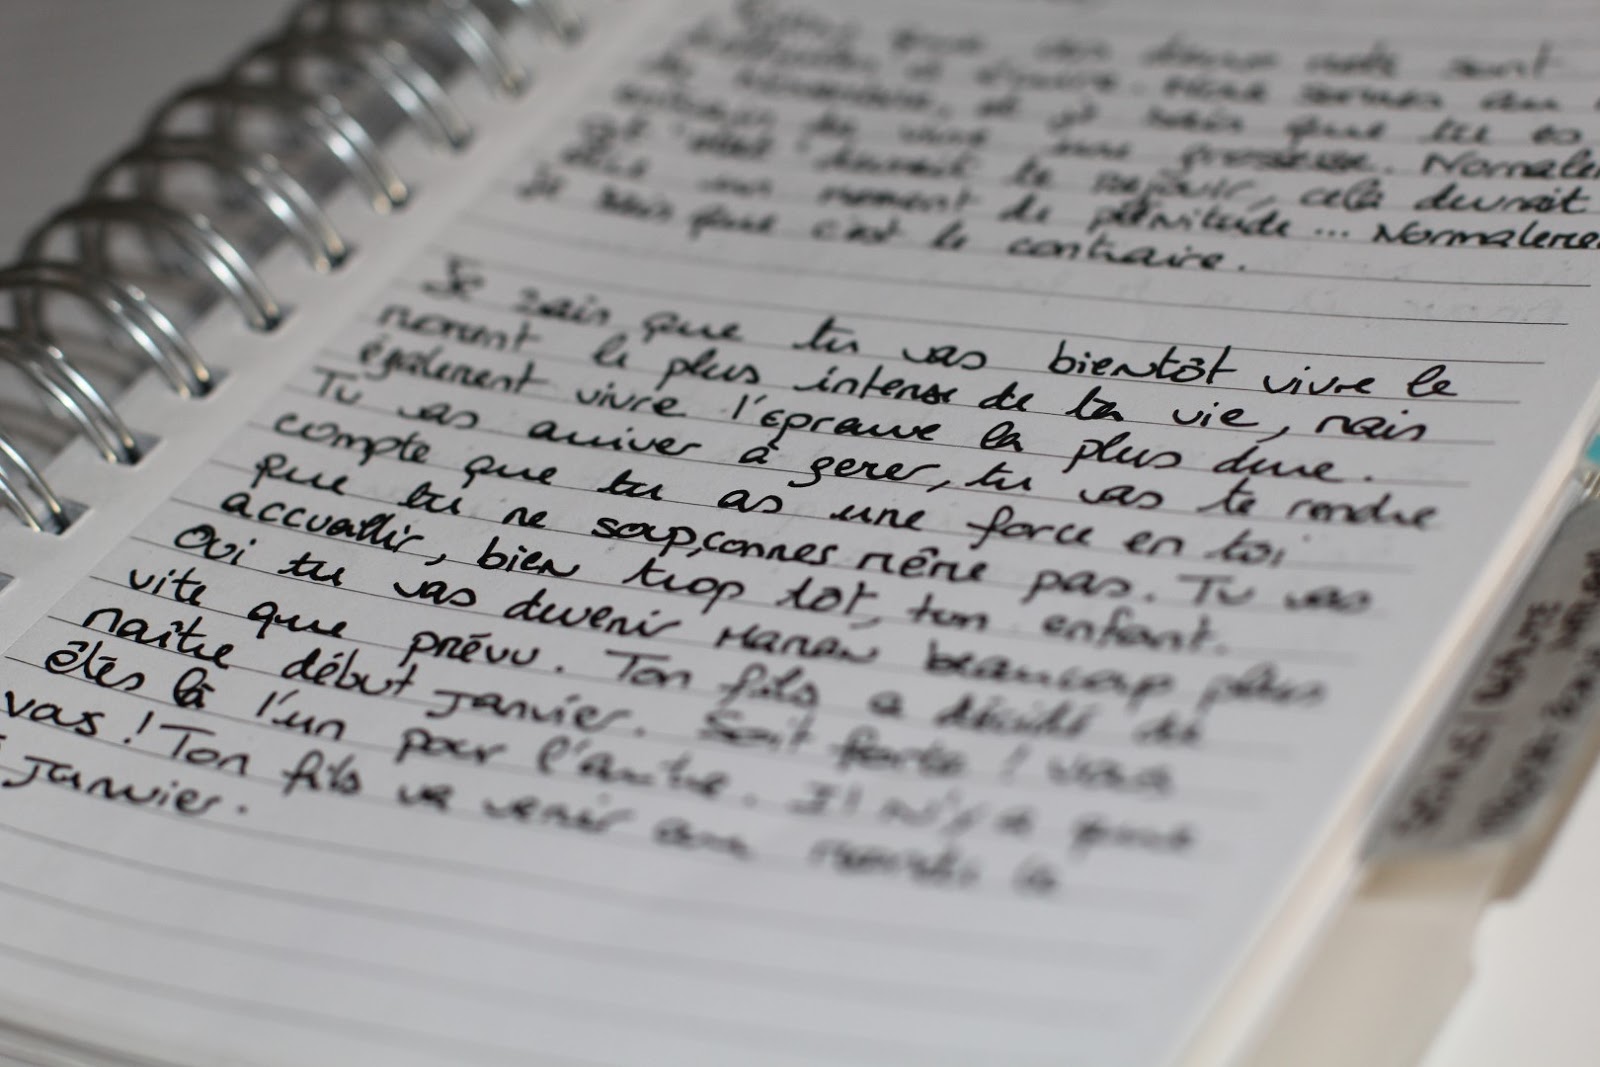 que ces deux mots sont
et j'espère. Nous sommes au
de novembre, et je sais que tu es
entrain de vivre une grossesse. Normalem
cet état devrait te réjouir, cela devrait
être un moment de plénitude... Normaleme
je sais que c'est le contraire.
Je sais que tu vas bientôt vivre le
moment le plus intense de ta vie, mais
également vivre l'épreuve la plus dure.
Tu vas arriver à gerer, tu vas te rendre
compte que tu as une force en toi
que tu ne soupçonnes même pas. Tu vas
accueillir, bien trop tôt, ton enfant.
Oui tu vas devenir Maman beaucoup plus
vite que prévu. Ton fils a décidé de
naître début janvier. Soit forte ! Vous
êtes là l'un pour l'autre. Il n'y a que
vas ! Ton fils va venir au monde le
janvier.